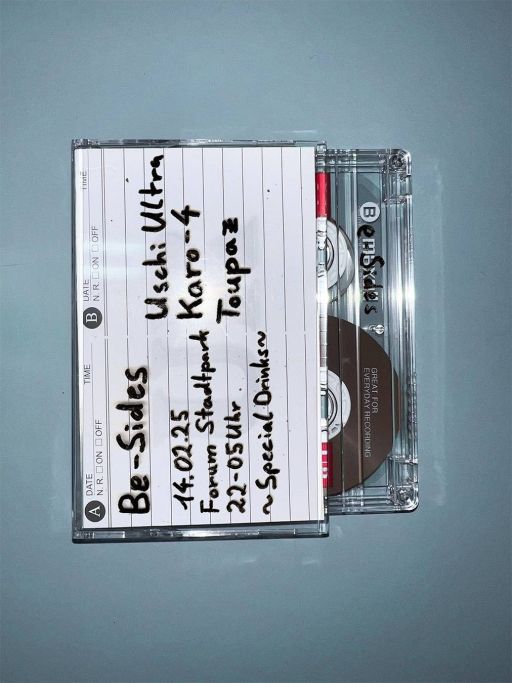 A DATE TIME
N. R. □ ON □ OFF
B DATE TIME
N. R. □ ON □ OFF
Be-Sides
14.02.25
Forum Stadtpark
22-05 Uhr
~Special Drinks~
Uschi Ultra
Karo-4
Toupaz
B
e Sides
GREAT FOR
EVERYDAY RECORDING